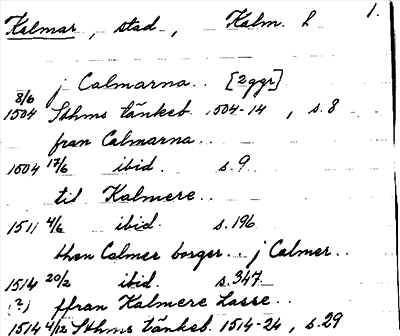 Kalmar, stad, Kalm. l 1.
j Calmarna.. [2ggr]
8/6
1504 Sthms tänkeb. 1504-14, s. 8
fran Calmarna..
1504 17/6 ibid. s. 9
til Kalmere..
1511 4/6 ibid. s. 196
then Calmer borger.. j Calmer..
1514 20/2 ibid. s. 347
(2) ffran Kalmere Lasse..
1514 4/12 Sthms tänkeb. 1514-24, s. 29